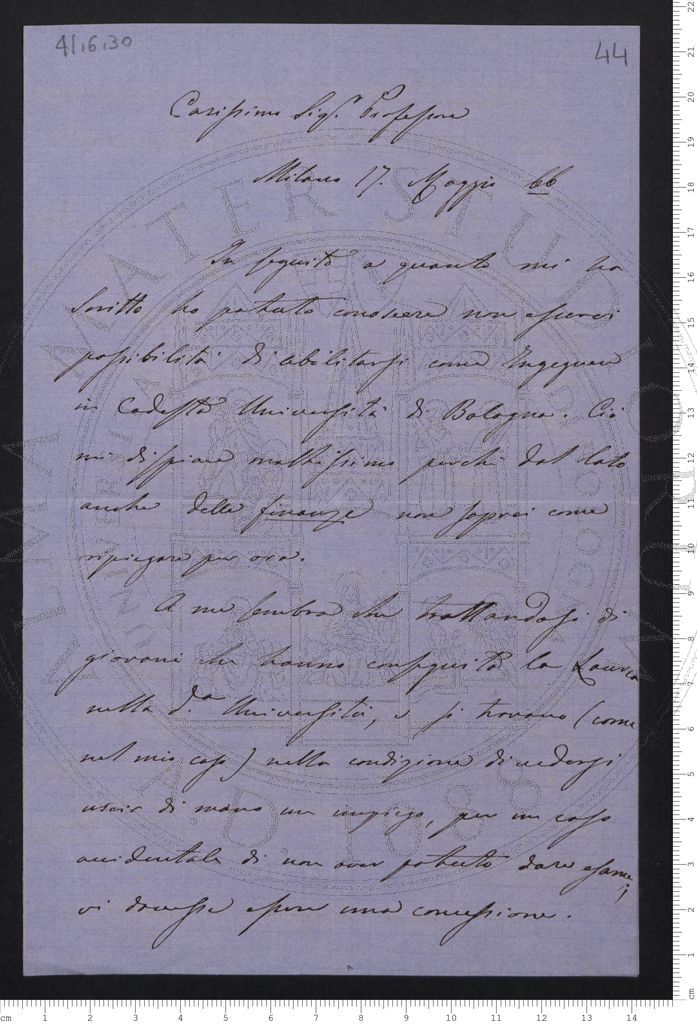 41.16.30
44
Carissimo Sig.r Professore
Milano 17. Maggio 66
In seguito a quanto mi ha
scritto ho potuto conoscere non esserci
possibilità di abilitarsi come Ingegnere
in Codesta Università di Bologna. Ciò
mi dispiace moltissimo perchè dal lato
anche delle finanze non saprei come
ripiegare per ora.
A me sembra che trattandosi di
giovani che hanno conseguita la Laurea
nella d.a Università, e si trovano (come
nel mio caso) nella condizione di vedersi
uscir di mano un impiego, per un caso
accidentale di non aver potuto dare esame,
vi dovesse essere una concessione.
ALMA MATER STUDIORUM
A.D. 1088
cm 1 2 3 4 5 6 7 8 9 10 11 12 13 14
cm 1 2 3 4 5 6 7 8 9 10 11 12 13 14 15 16 17 18 19 20 21 22